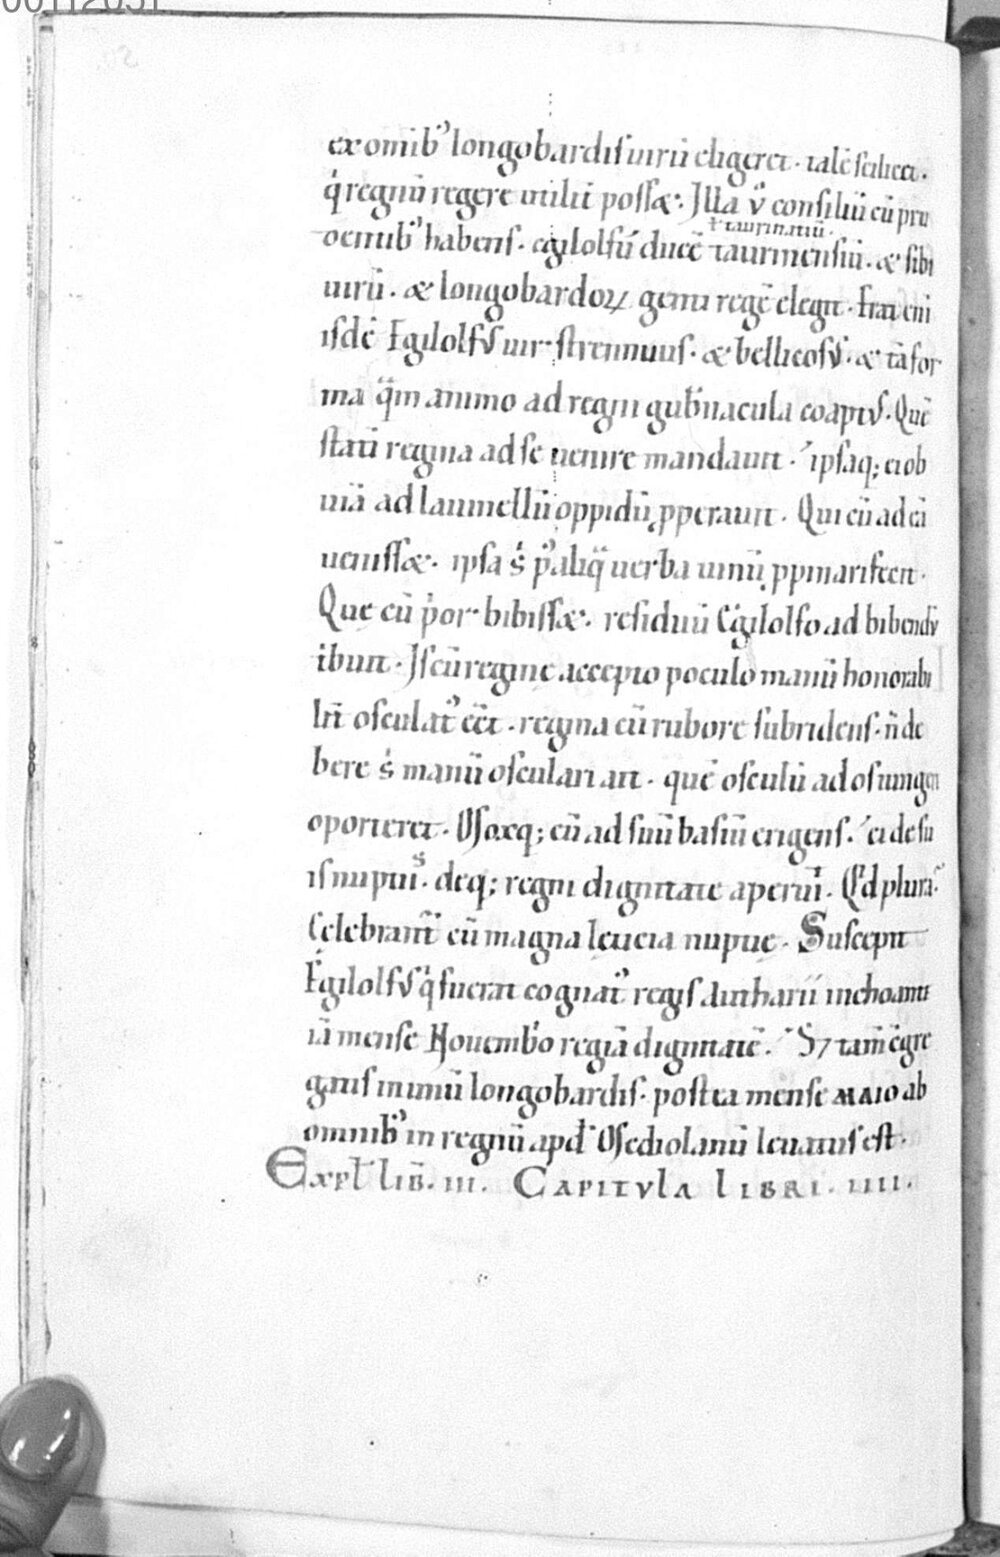 00112051
ex omib' longobardis uirū eligeret. talē scilicet.
q' regnū regere utilit' posset. Illa v° consiliū cū pru
ł taurinatiū.
dentib' habens. agilolfū ducē taurinensiū. & sibi
uirū. & longobardoꝝ genti regē elegit. Erat eni
isdē Egilolfus uir strennuus. & bellicosus. & tā for
ma q̄m animo ad regni gub'nacula coaptus. Quē
statī regina ad se uenire mandauit. ipsaq; ei ob
uiā ad laumellū oppidū pperauit. Qui cū ad eā
uenisset. ipsa s' p' aliq̄ uerba uinū ppinari fecit.
Que cū p'or bibisset. residuū Egilolfo ad bibendū
ibuit. Is cū regine accepto poculo manū honorabi
lit' osculat' eēt. regina cū rubore subridens. n̄ de
bere s' manū osculari ait. quē osculū ad os iunge
oporteret. Moxq; eū ad suū basiū erigens. ei de su
is nuptiis. deq; regni dignitate aperuit. Q'd plura?
Celebrant' cū magna leticia nuptie. Suscepit
Egilolfus q' fuerat cognat' regis Autharii inchoante
iā mense Nouemb'o regiā dignitatē. S; tam̄ cōgre
gatis in unū longobardis. postea mense MAIO ab
omnib' in regnū apd' Mediolanū leuatus est.
Expł lib̄. iii. Capitula libri. iiii.